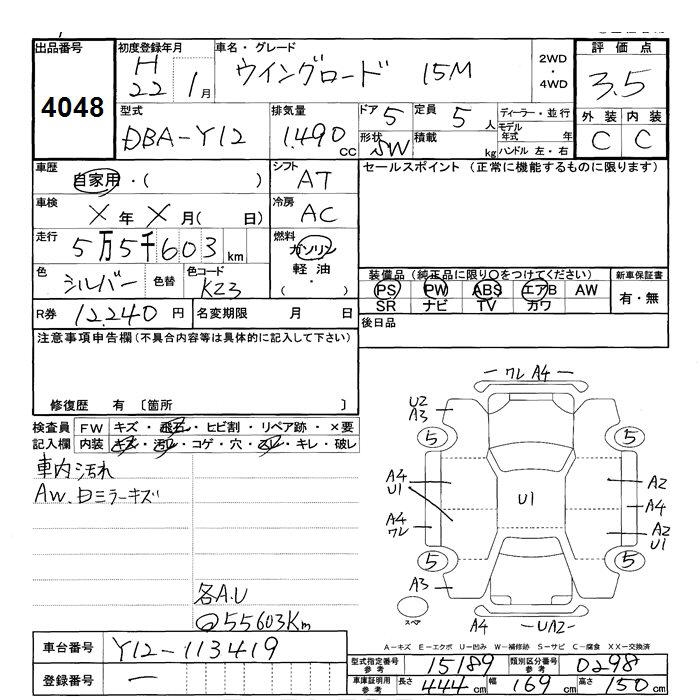 出品番号 初度登録年月 車名・グレード 評価点
4048 H22 1月 ウイングロード 15M 2WD・4WD 3.5
型式 排気量 ドア 5 定員 5人 ディーラー・並行 外装 内装
DBA-Y12 1,490CC 形状 SW 積載 kg モデル年式 年 ハンドル 左・右 C C
車歴 シフト セールスポイント (正常に機能するものに限ります)
自家用・( ) AT
車検 X年X月( 日) 冷房 AC
走行 5万5千603km 燃料 ガソリン 軽油 ( ・ )
色 シルバー 色替 色コード K23
装備品(純正品に限り○をつけてください) 新車保証書
PS PW ABS エアB AW 有・無
SR ナビ TV カワ
R券 12,240円 名変期限 月 日 後日品
注意事項申告欄(不具合内容等は具体的に記入して下さい)
修復歴 有 〔箇所 〕
検査員記入欄 FW キズ・飛石・ヒビ割・リペア跡・×要
内装 キズ・汚レ・コゲ・穴・スレ・キレ・破レ
車内汚れ
AW、Dミラーキズ
各A.U
@55603Km
ワレ A4
U2
A3
5 5
A4
U1
A2
U1
A4
A4
ワレ
A2
U1
5 5
A3
スペア
A4 UA2
A-キズ E-エクボ U-凹み W-補修跡 S-サビ C-腐食 XX-交換済
車台番号 Y12-113419
型式指定番号 参考 15189 類別区分番号 参考 0298
登録番号 ー
車庫証明用 参考 長さ 444cm 幅 169cm 高さ 150cm